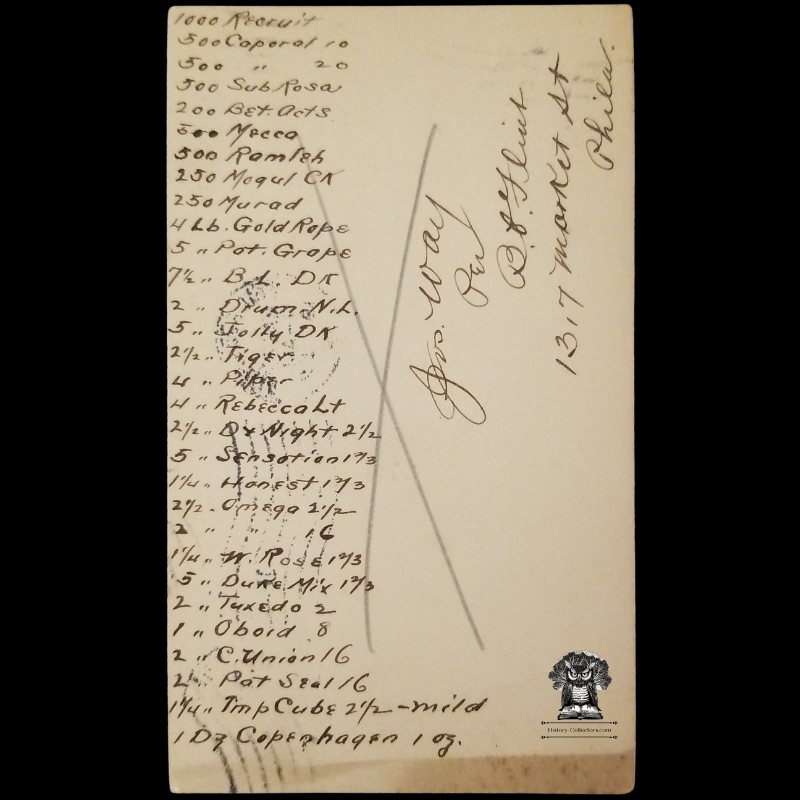 1000 Recruit
500 Caporal 10
500 " 20
500 Sub Rosa
200 Bet. Acts
500 Mecca
500 Ramleh
250 Mogul CK
250 Murad
4 Lb. Gold Rope
5 " Pat. Grape
7½ " B. L. DK
2 " Drum N.L.
5 " Jolly DK
2½ " Tiger
4 " Piper
4 " Rebecca Lt
2½ " Dx Night 2½
5 " Sensation 1⅔
1¼ " Honest 1⅔
2½ " Omega 2½
2 " " 16
1¼ " W. Rose 1⅔
5 " Duke Mix 1⅔
2 " Tuxedo 2
1 " Oboid 8
2 " C. Union 16
2 " Pat Seal 16
1¼ " Imp Cube 2½ - mild
1 Dz Copenhagen 1 oz.
Jos. Way
Per
Flint
1317 Market St
Phila.
History-Collectors.com